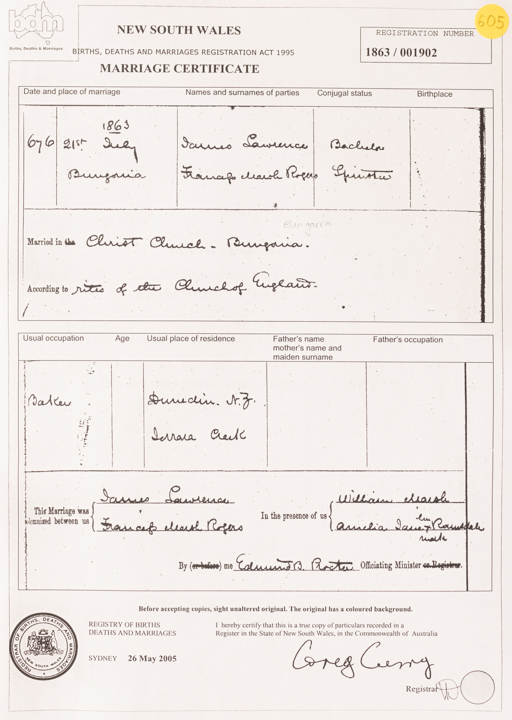 bdm
Births, Deaths & Marriages
NEW SOUTH WALES
BIRTHS, DEATHS AND MARRIAGES REGISTRATION ACT 1995
MARRIAGE CERTIFICATE
REGISTRATION NUMBER
1863 / 001902
605
Date and place of marriage Names and surnames of parties Conjugal status Birthplace
1863
676 21st July James Lawrence Bachelor
Bungonia Frances Marsh Rogers Spinster
Bungonia
Married in the Christ Church - Bungonia.
According to rites of the Church of England.
Usual occupation Age Usual place of residence Father's name Father's occupation
mother's name and
maiden surname
Baker Dunedin. N.Z.
Jerrara Creek
This Marriage was James Lawrence In the presence of us William Marsh
lemnized between us Frances Marsh Rogers Amelia Jane her x
mark
By (or before) me Edmund B. Procter Officiating Minister or Registrar.
Before accepting copies, sight unaltered original. The original has a coloured background.
REGISTRY OF BIRTHS
DEATHS AND MARRIAGES
I hereby certify that this is a true copy of particulars recorded in a
Register in the State of New South Wales, in the Commonwealth of Australia
SYDNEY 26 May 2005
Greg Curry
Registrar
REGISTRAR OF BIRTHS, DEATHS AND MARRIAGES
NEW SOUTH WALES